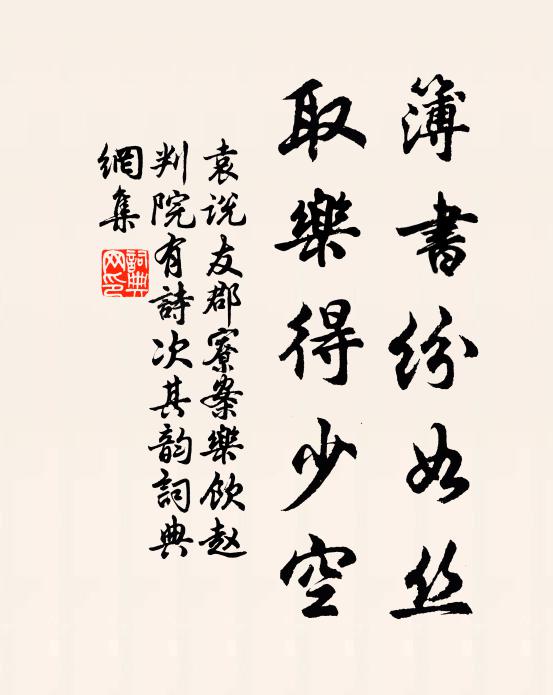 簿書紛如丝
取樂得少空
袁说友郡寮案樂飲赵
判院有詩次其韵詞典
網集
詞典网印